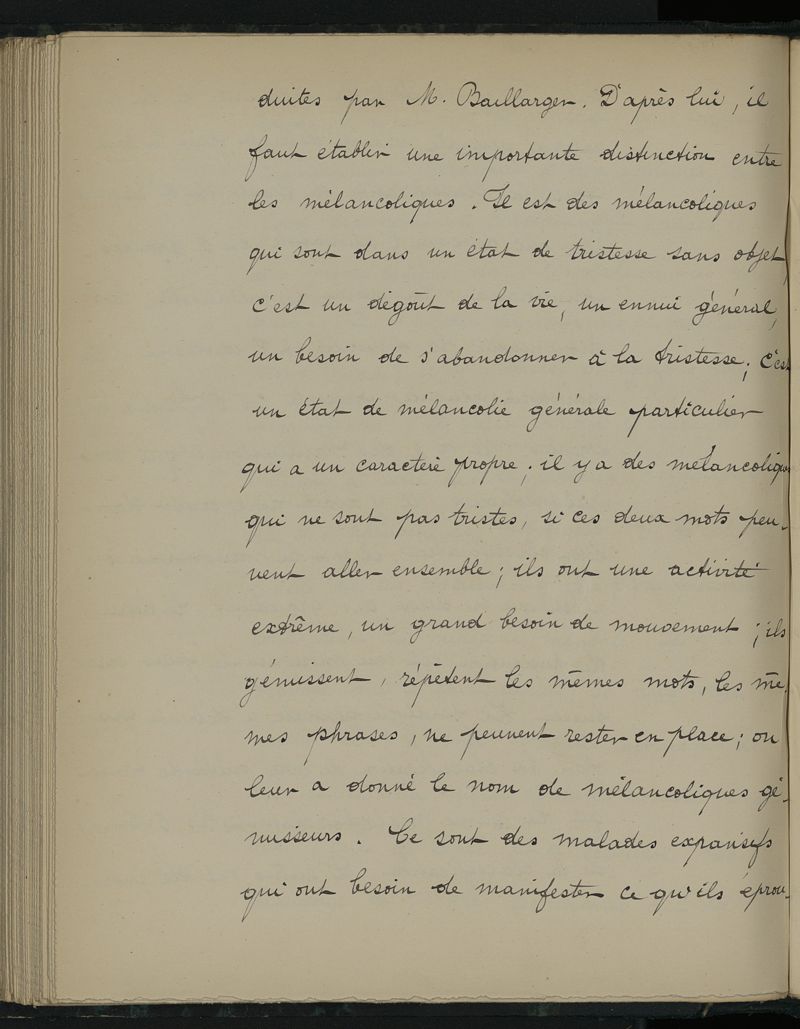 duites par M. Baillarger. D'après lui, il
faut établir une importante distinction entre
les mélancoliques. Il est des mélancoliques
qui sont dans un état de tristesse sans objet,
c'est un dégoût de la vie, un ennui général,
un besoin de s'abandonner à la tristesse; c'est
un état de mélancolie générale particulier
qui a un caractère propre; il y a des mélancoliques
qui ne sont pas tristes, si ces deux mots peu-
vent aller ensemble; ils ont une activité
extrême, un grand besoin de mouvement; ils
gémissent, répètent les mêmes mots, les mê-
mes phrases, ne peuvent rester en place; on
leur a donné le nom de mélancoliques gé-
misseurs. Ce sont des malades expansifs
qui ont besoin de manifester ce qu'ils éprou-